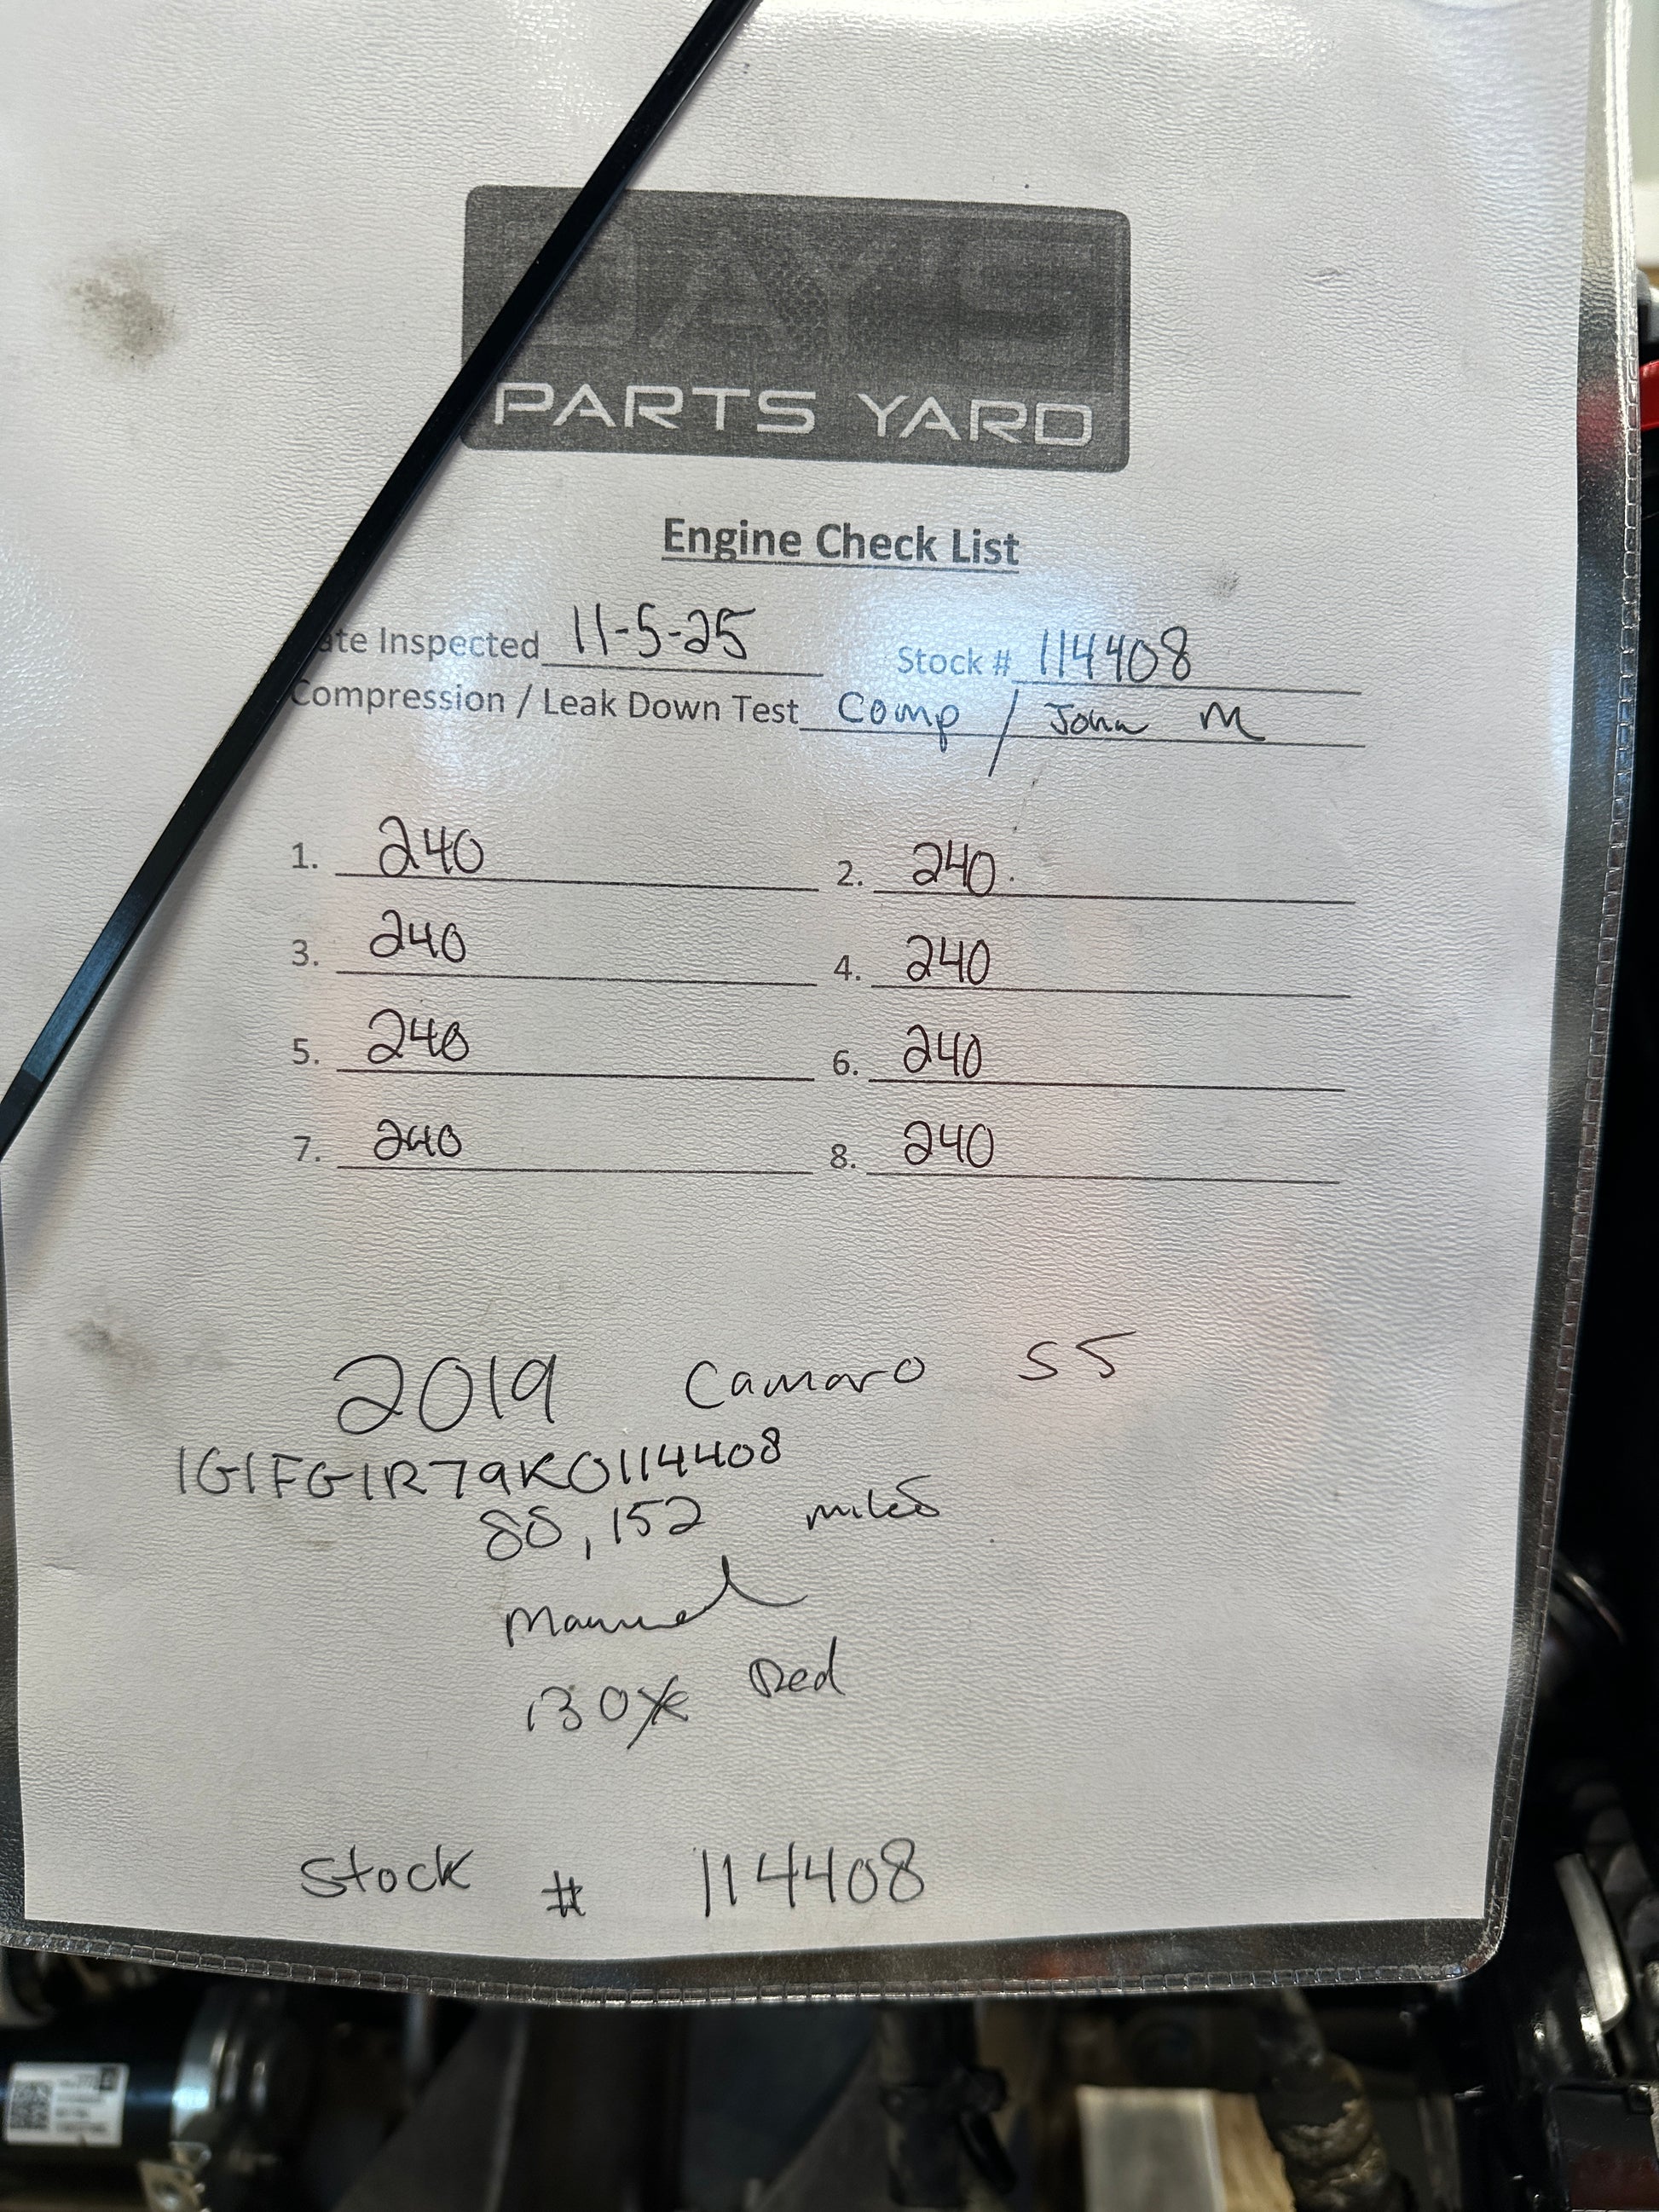 PARTS YARD
Engine Check List
ate Inspected 11-5-25 Stock # 114408
Compression / Leak Down Test Comp / John M
1. 240 2. 240.
3. 240 4. 240
5. 240 6. 240
7. 240 8. 240
2019 Camaro SS
1G1FG1R79K0114408
miles
Manual
Red
Stock # 114408